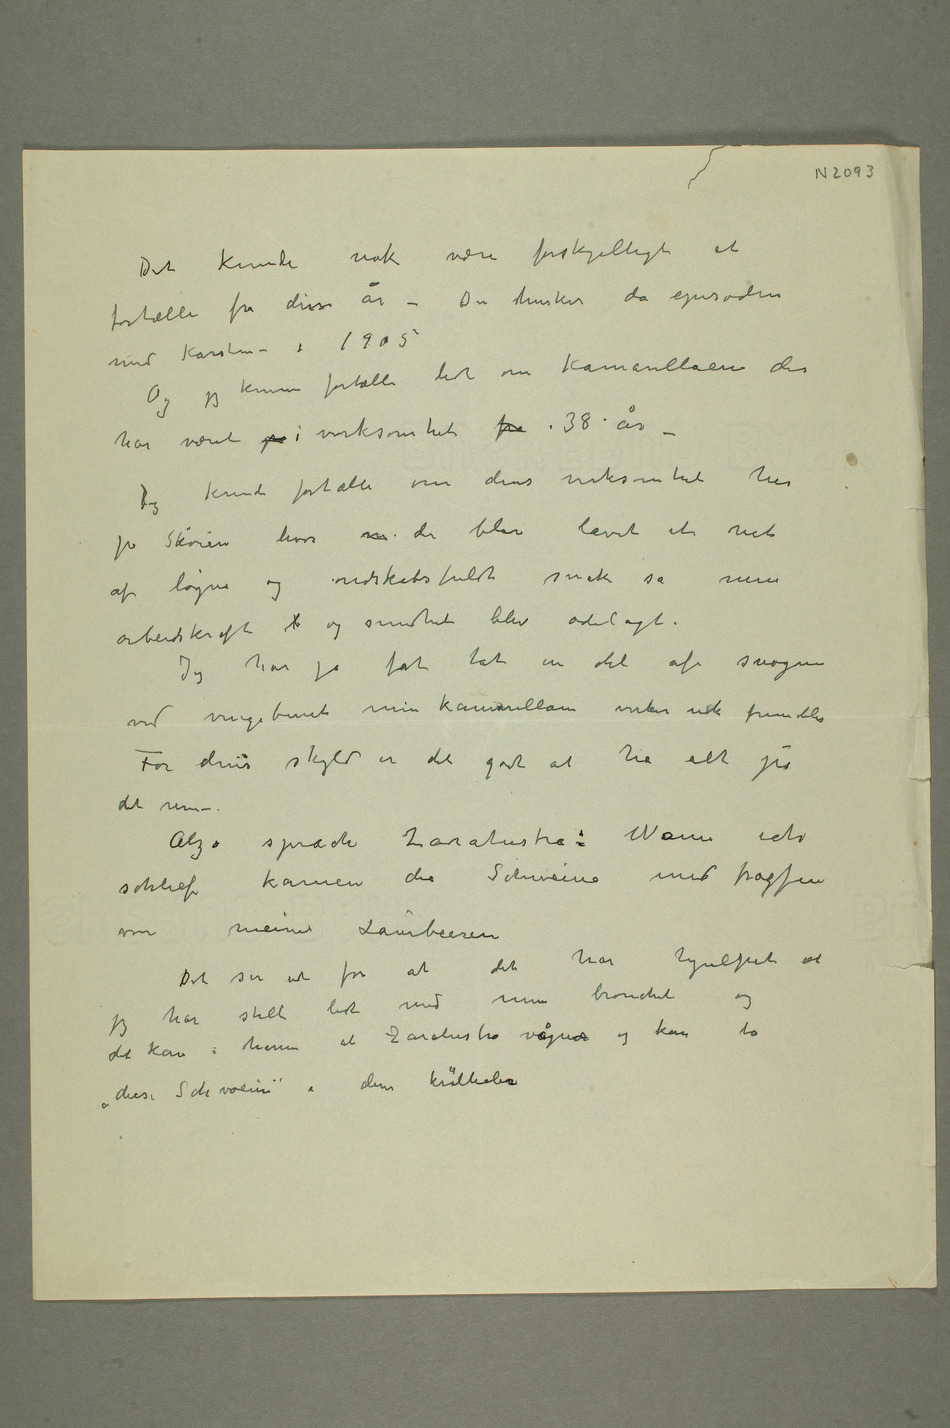 N 2093
Det kunde nok være forskjelligt at
fortælle fra disse år – Du husker da episoden
med Karsten – i 1905
Og jeg kunne fortælle lidt om Kamarillaen der
har været på i virksomhet fra i 38 år –
Jeg kunde fortælle om dens virksomhet her
på Skøien hvor m der blev lavet et net
af løgne og ondskabsfuldt snak så min
arbeidskraft t og sundhet blev ødelagt.
Jeg har jo fåt tat en del af
ved vingebenet min Kamarillaen virker nok fremdeles
For dens skyld er det godt at ha alt på
det rene –.
Alzo sprach Zaratustra: Wenn ich
schlief kamen die Schweine und fragsen
von meine Laurbeeren
Det ser ut for at det har hjulpet at
jeg har stelt lidt med min bronchit og
det kan i hænne at Zaratustra vågner og kan ta
„diese Schweine“ i dem krølhaler